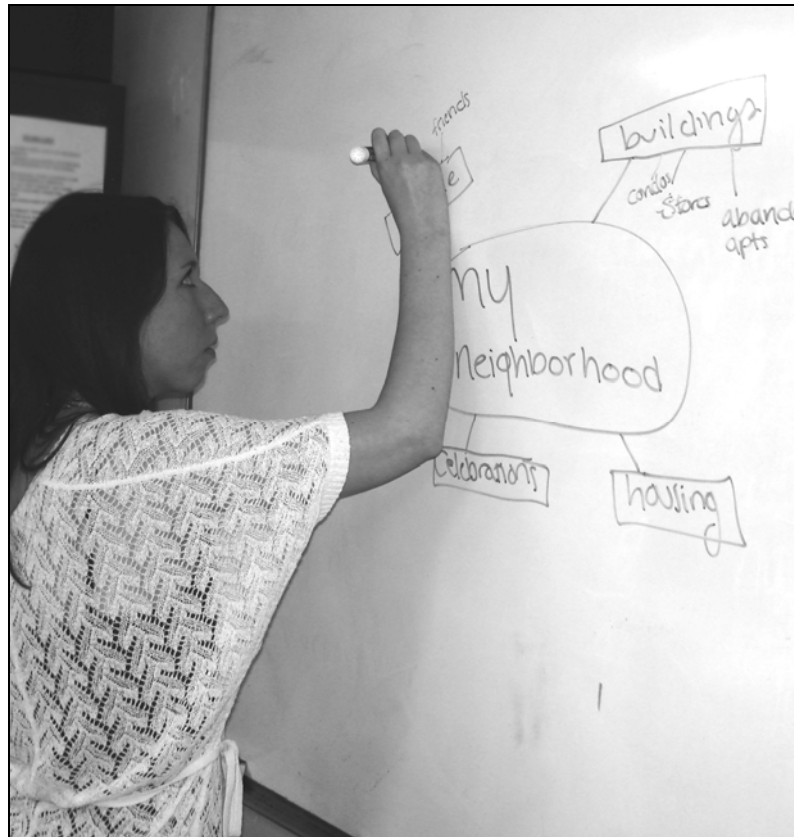 friends
buildings
condos
Stores
aband
apts
my
neighborhood
Celebrations
housing